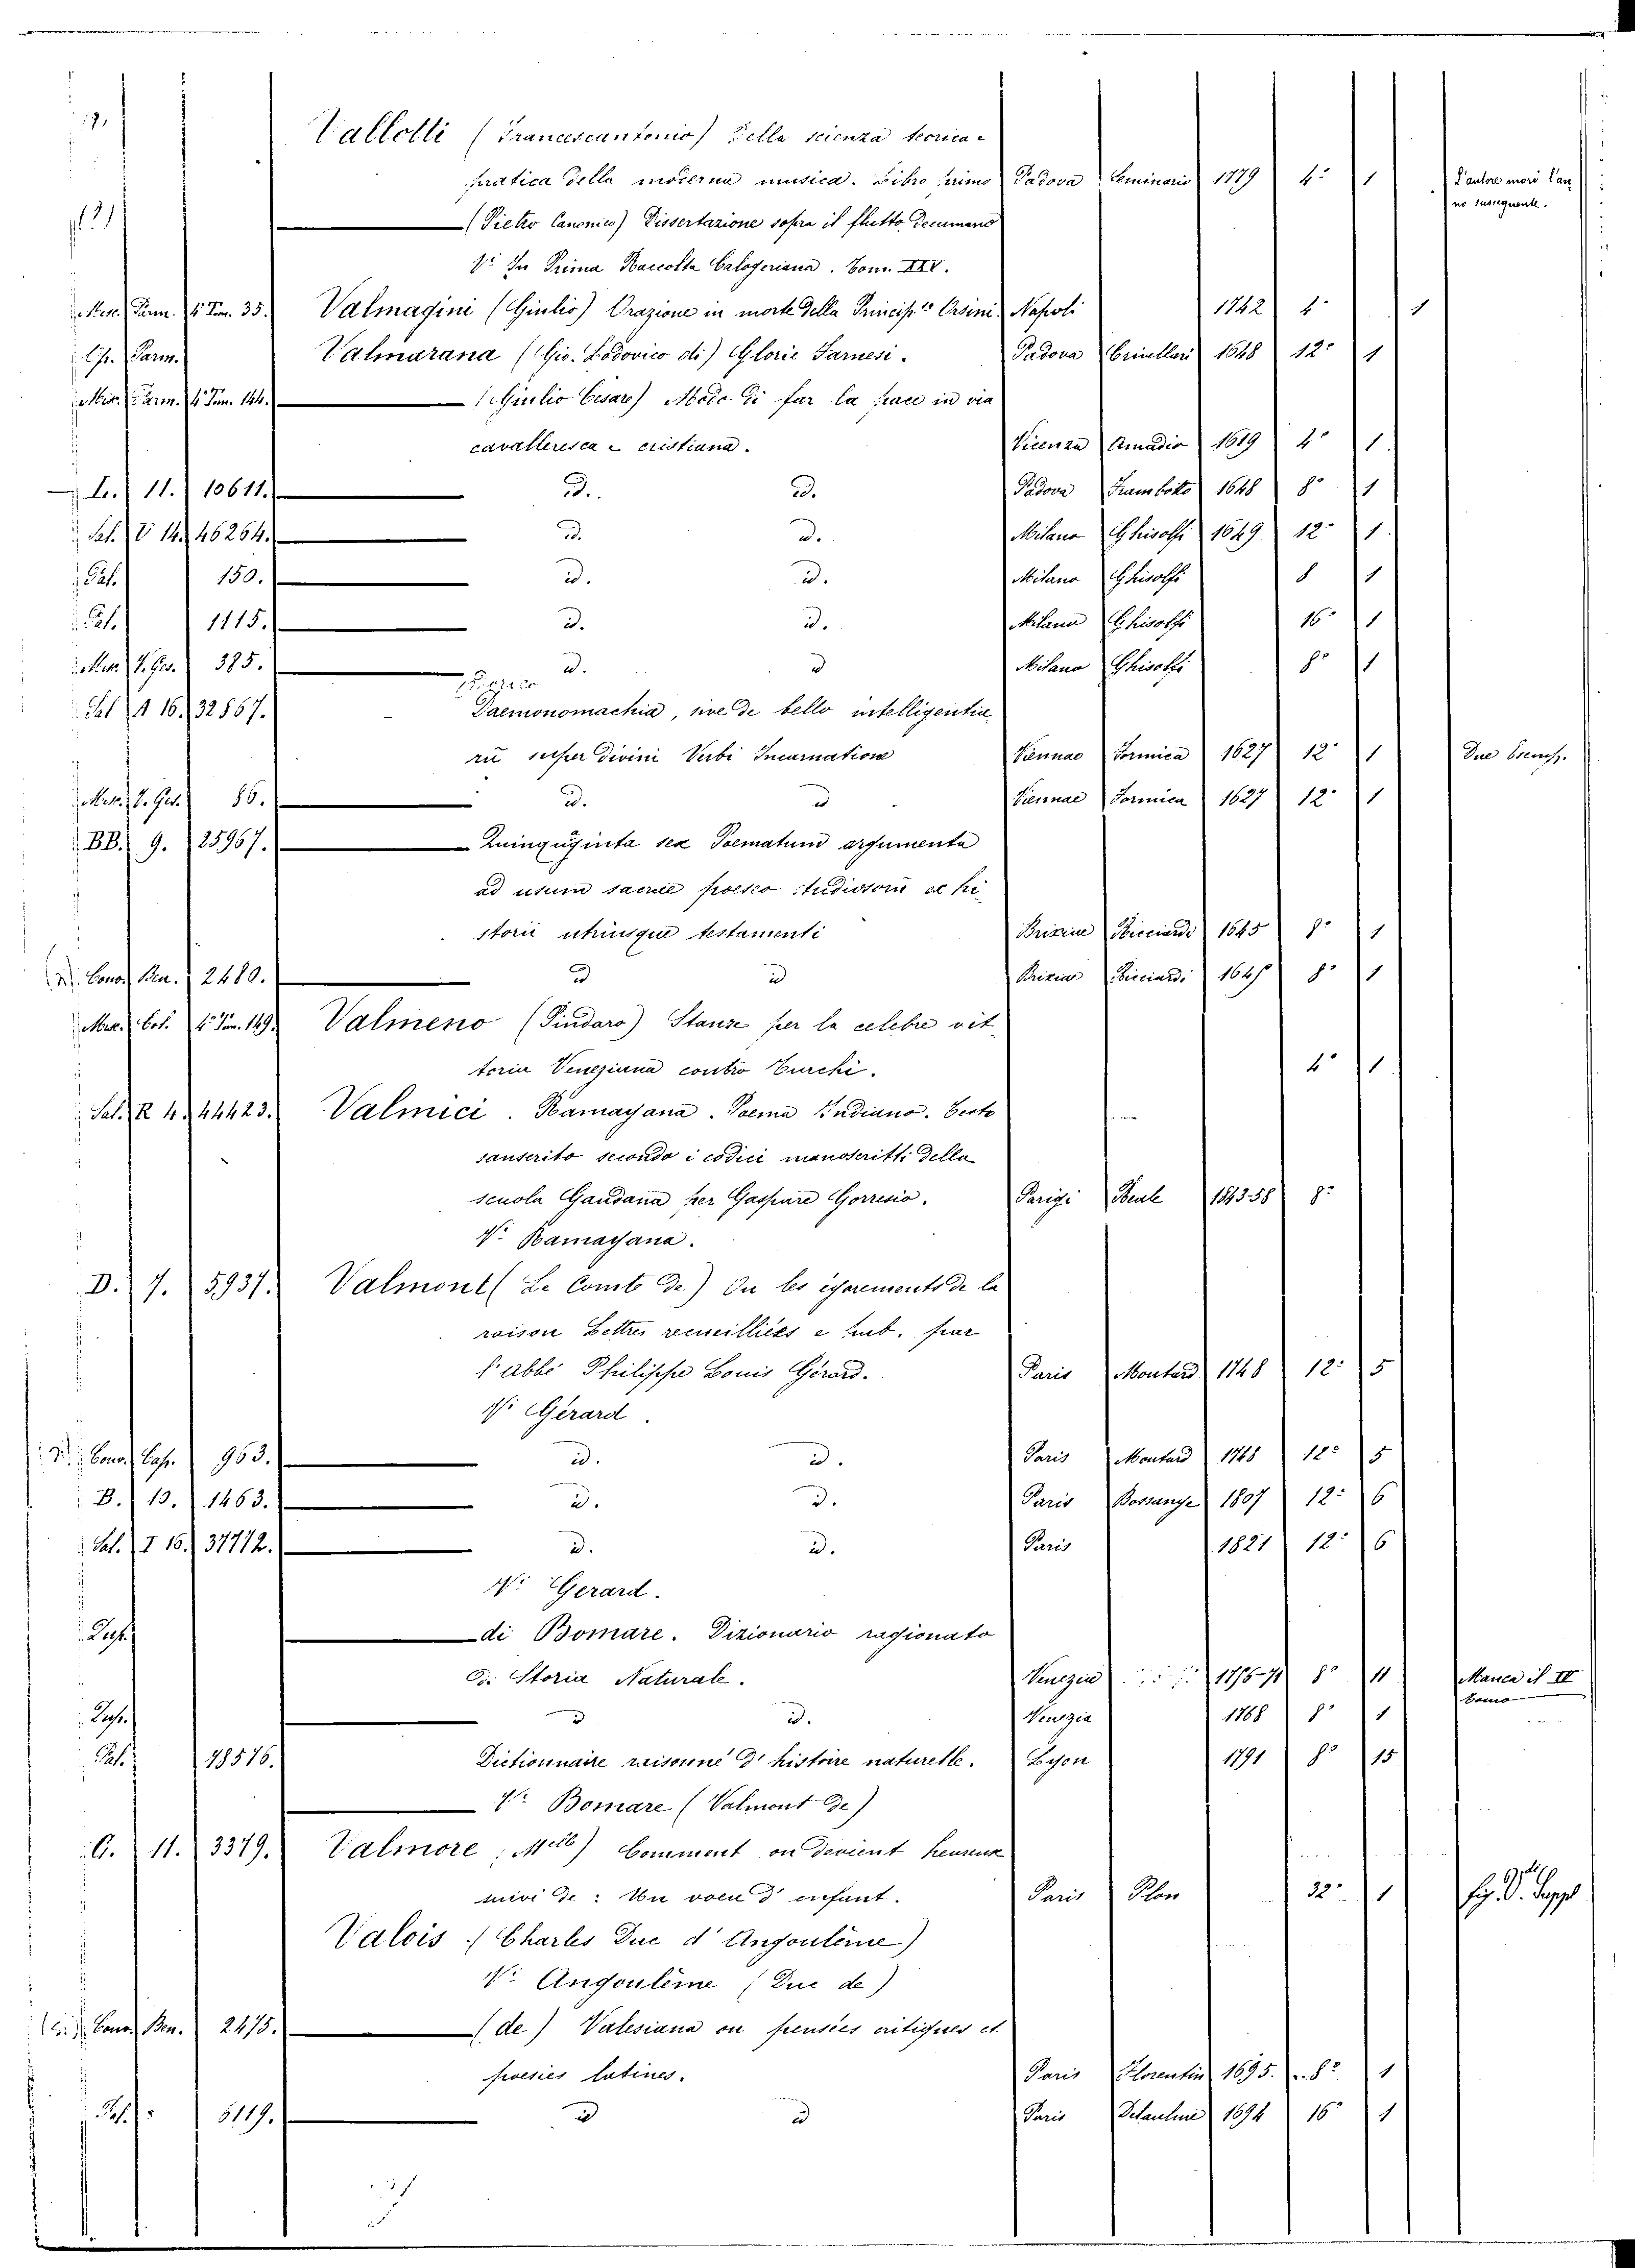 Vallotti (Francescantonio) Della scienza teorica e
pratica della moderna musica. Libro primo Padova Seminario 1779 4° 1 L'autore morì l'an
no susseguente.
(Pietro Canonico) Dissertazione sopra il flutto decumano
V: In Prima Raccolta Calogeriana. Tom. XXV.
Misc. Parm. 4° Tom. 35. Valmagini (Giulio) Orazione in morte della Principessa Orsini Napoli 1742 4° 1
Parm. Valmarana (Gio. Lodovico di) Glorie Farnesi. Padova Crivellari 1648 12° 1
Misc. Parm. 4° Tom. 144. (Giulio Cesare) Modo di far la pace in via
cavalleresca e cristiana. Vicenza Amadio 1619 4° 1
11. 10611. id. id. Padova Frambotto 1648 8° 1
Sal. V 14. 46264. id. id. Milano Ghisolfi 1649 12° 1
Pal. 150. id. id. Milano Ghisolfi 8 1
Pal. 1115. id. id. Milano Ghisolfi 16° 1
385. id. id. Milano Ghisolfi 8° 1
Sal A 16. 32867. Daemonomachia, sive de bello intelligentia
rū super divini Verbi Incarnatione Viennae Formica 1627 12° 1 Due Esemp.
86. id. id. Viennae Formica 1627 12° 1
BB. 9. 25967. Quinquginta sex Poematum argumenta
ad usum sacrae poeseo studiosorū ex hi
storii utriusque testamenti Brixiae Ricciardi 1645 8° 1
Conv. Ben. 2480. id id Brixiae Ricciardi 8° 1
Misc. Bot. 4° Tom. 149. Valmeno (Pindaro) Stanze per la celebre vit
toria Veneziana contro Turchi. 4° 1
Sal. R 4. 44423. Valmici. Ramayana. Poema Indiano. Testo
sanscrito secondo i codici manoscritti della
scuola Gaudana per Gaspare Gorresio. Parigi 1843-58 8°
V. Ramayana.
D. 7. 5937. Valmont (Le Comte de) Ou les égarements de la
raison Lettres recueillies e pub. par
l'abbé Philippe Louis Gérard. Paris Moutard 1748 12° 5
V: Gérard.
Conv. Cap. 963. id. id. Paris Moutard 1748 12° 5
B. 13. 1463. id. id. Paris Bossange 1807 12° 6
Sal. I 16. 37772. id. id. Paris 1821 12° 6
V: Gerard.
di Bomare. Dizionario ragionato
di Storia Naturale. Venezia 8° 11 Manca il IV
tomo
id id. Venezia 1768 8° 1
Pal. 18576. Dictionnaire raisonné d'histoire naturelle. Lyon 1791 8° 15
V: Bomare (Valmont de)
11. 3379. Valmore (Melle) Comment on devient heureux
suivi de: Un voeu d'enfant. Paris Plon 32° 1
Valois (Charles Duc d'Angoulême)
V: Angoulême (Duc de)
Conv. Ben. 2475. (de) Valesiana ou pensées critiques et
poesies latines. Paris Florentin 1695. 8° 1
5119. id id Paris Delaulne 1694 16° 1